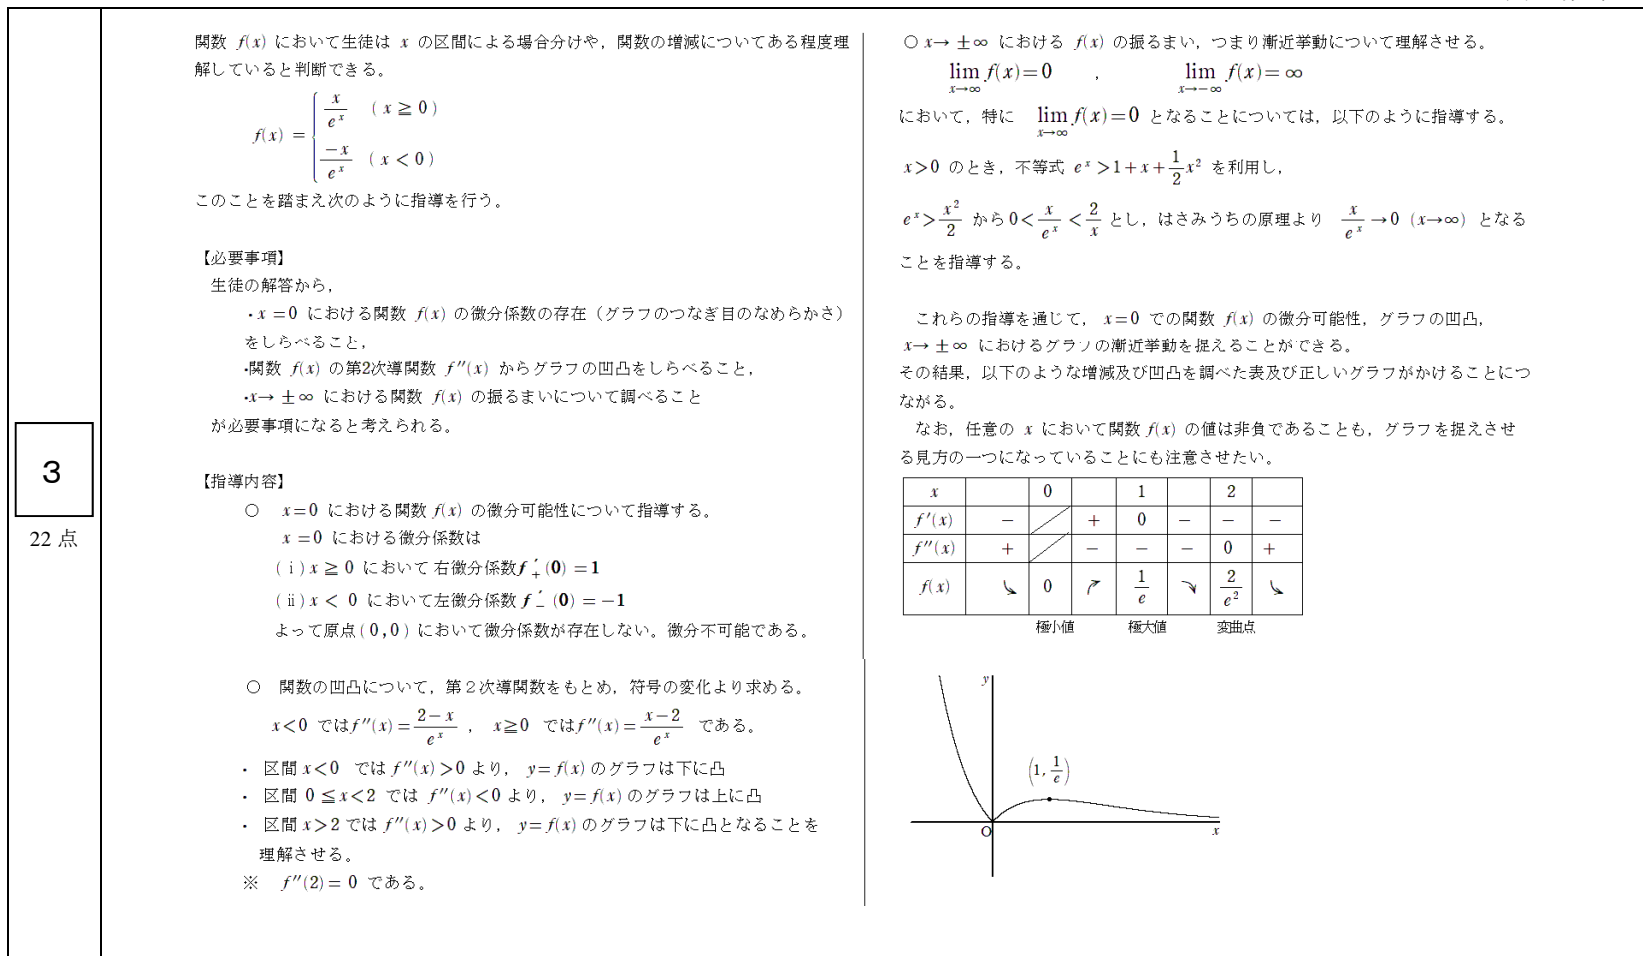 3
22 点
関数 f(x) において生徒は x の区間による場合分けや，関数の増減についてある程度理
解していると判断できる。
f(x) = { x/e^x （ x ≧ 0 ）
−x/e^x （ x < 0 ）
このことを踏まえ次のように指導を行う。
【必要事項】
生徒の解答から，
・x = 0 における関数 f(x) の微分係数の存在（グラフのつなぎ目のなめらかさ）
をしらべること，
・関数 f(x) の第2次導関数 f″(x) からグラフの凹凸をしらべること，
・x→ ±∞ における関数 f(x) の振るまいについて調べること
が必要事項になると考えられる。
【指導内容】
○ x=0 における関数 f(x) の微分可能性について指導する。
x = 0 における微分係数は
(ⅰ) x ≧ 0 において右微分係数 f′₊(0) = 1
(ⅱ) x < 0 において左微分係数 f′₋(0) = −1
よって原点(0,0)において微分係数が存在しない。微分不可能である。
○ 関数の凹凸について，第２次導関数をもとめ，符号の変化より求める。
x<0 では f″(x) = (2−x)/e^x ， x≧0 では f″(x) = (x−2)/e^x である。
・ 区間 x<0 では f″(x)>0 より， y=f(x) のグラフは下に凸
・ 区間 0 ≦x<2 では f″(x)<0 より， y=f(x) のグラフは上に凸
・ 区間 x>2 では f″(x)>0 より， y=f(x) のグラフは下に凸となることを
理解させる。
※ f″(2)= 0 である。
○ x→ ±∞ における f(x) の振るまい，つまり漸近挙動について理解させる。
lim_{x→∞} f(x)=0 ， lim_{x→−∞} f(x)=∞
において，特に lim_{x→∞} f(x)=0 となることについては，以下のように指導する。
x>0 のとき，不等式 e^x >1+x+1/2 x² を利用し，
e^x > x²/2 から 0< x/e^x < 2/x とし，はさみうちの原理より x/e^x →0 (x→∞) となる
ことを指導する。
これらの指導を通じて， x=0 での関数 f(x) の微分可能性，グラフの凹凸，
x→ ±∞ におけるグラフの漸近挙動を捉えることができる。
その結果，以下のような増減及び凹凸を調べた表及び正しいグラフがかけることにつ
ながる。
なお，任意の x において関数 f(x) の値は非負であることも，グラフを捉えさせ
る見方の一つになっていることにも注意させたい。
x 0 1 2
f′(x) − + 0 − − −
f″(x) + − − − 0 +
f(x) ↘ 0 ↗ 1/e ↘ 2/e² ↘
極小値 極大値 変曲点
y
(1, 1/e)
O x